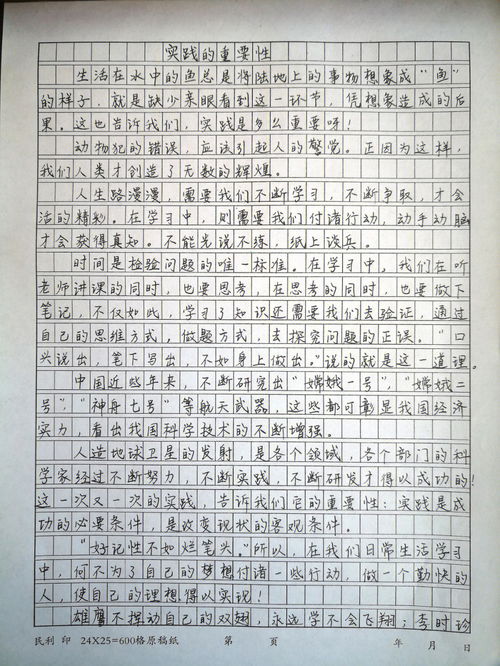 实践的重要性
生活在水中的鱼总是将陆地上的事物想象成“鱼”
的样子，就是缺少亲眼看到这一环节，凭想象造成的后
果。这也告诉我们，实践是多么重要呀！
动物犯的错误，应该引起人的警觉。正因为这样，
我们人类才创造了无数的辉煌。
人生路漫漫，需要我们不断学习，不断争取，才会
活的精彩。在学习中，则需要我们付诸行动，动手动脑
才会获得真知。不能光说不练，纸上谈兵。
时间是检验问题的唯一标准。在学习中，我们在听
老师讲课的同时，也要思考，在思考的同时，也要做下
笔记，不仅如此，学习了知识还需要我们去验证，通过
自己的思维方式，做题方式，去探究问题的正误。“口
头说出，笔下写出，不如身上做出。”说的就是这一道理。
中国近些年来，不断研究出“嫦娥一号”，“嫦娥二
号”，“神舟七号”等航天武器，这些都可彰显我国经济
实力，看出我国科学技术的不断增强。
人造地球卫星的发射，是各个领域，各个部门的科
学家经过不断努力，不断实践，不断研发才得以成功的！
这一次又一次的实践，告诉我们它的重要性：实践是成
功的必要条件，是改变现状的客观条件。
“好记性不如烂笔头。”所以，在我们日常生活学习
中，何不为了自己的梦想付诸一些行动，做一个勤快的
人，使自己的理想得以实现！
雄鹰不挥动自己的双翅，永远学不会飞翔；李时珍
民利 印 24X25=600格原稿纸 第 页 年 月 日